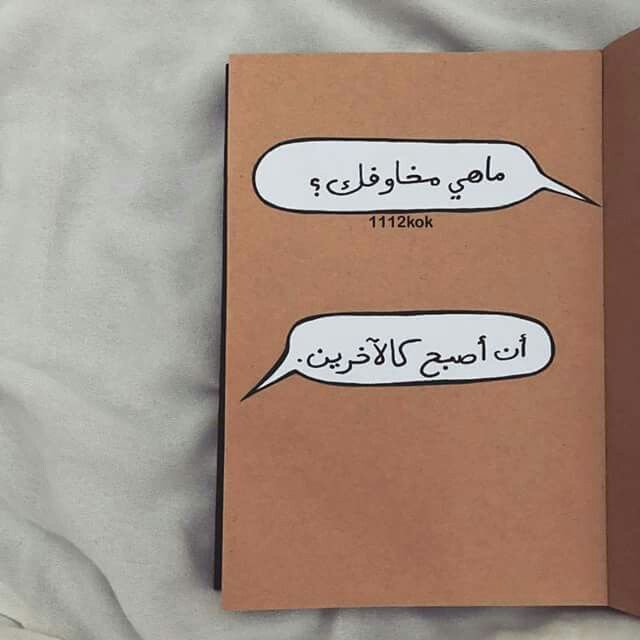 ماهي مخاوفك ؟
1112kok
أن أصبح كالآخرين.